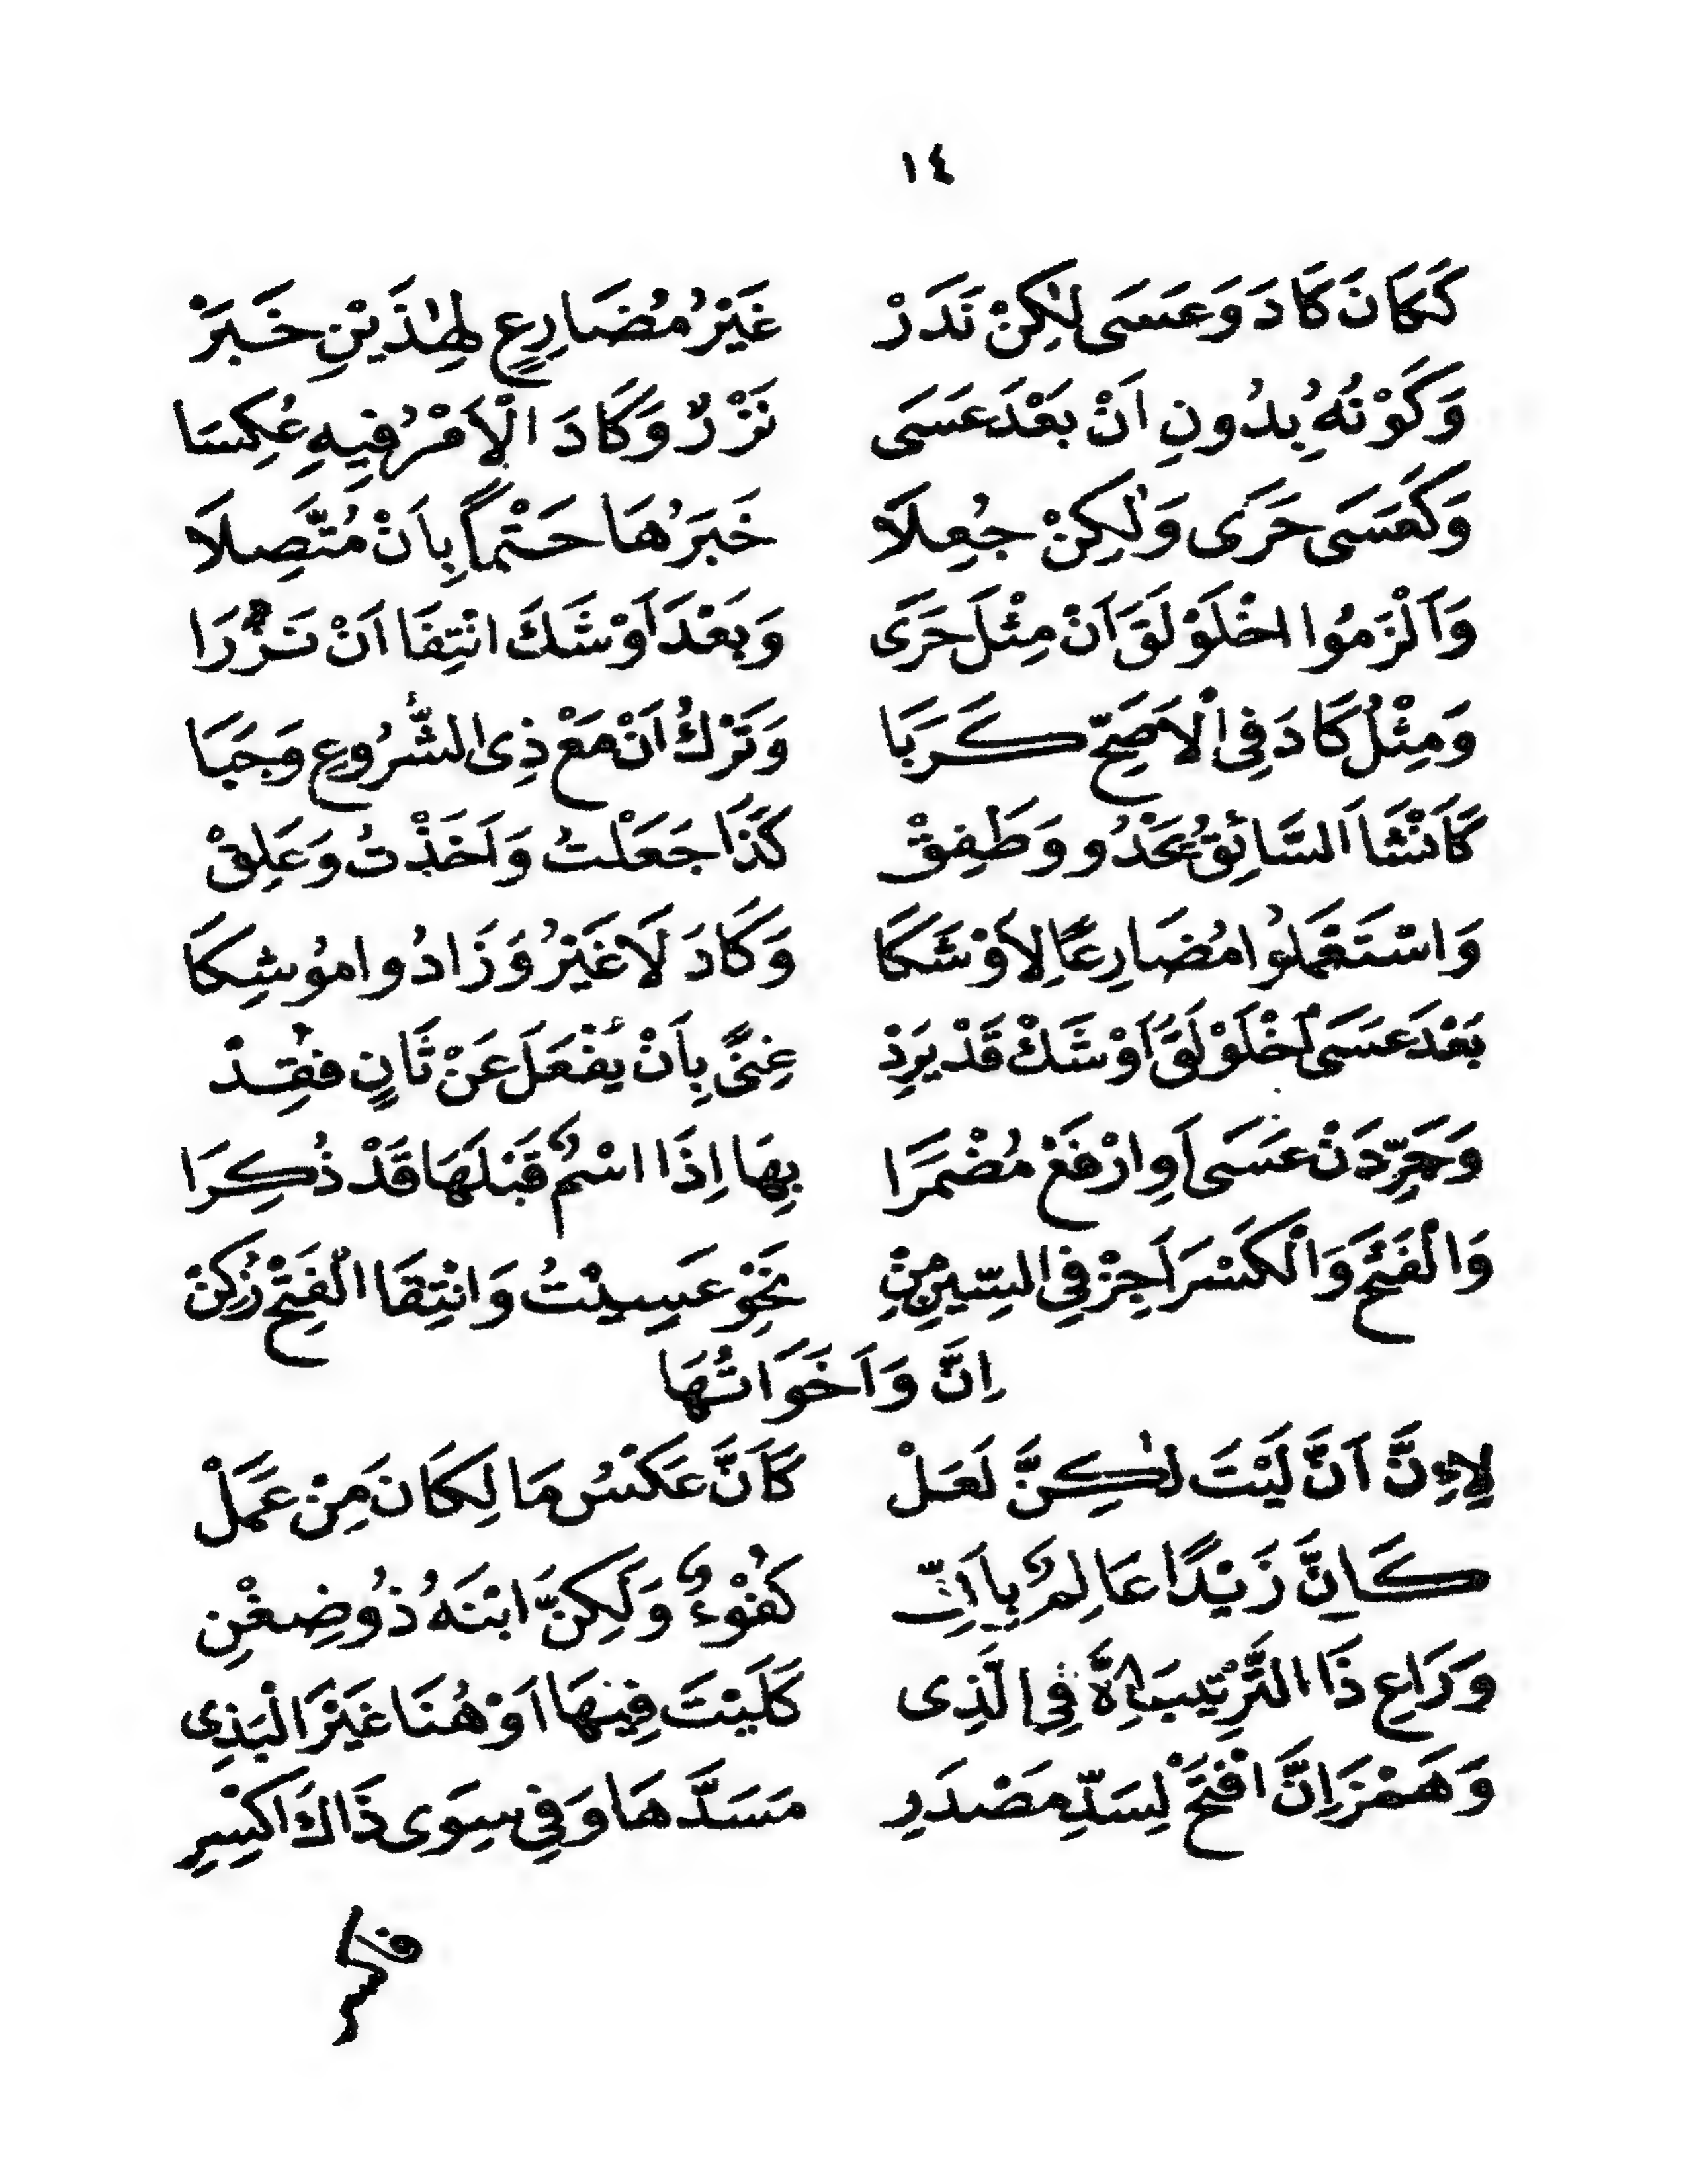 ١٤
كَكَانَ كَادَ وَعَسَى لٰكِنْ نَدَرْ غَيْرُ مُضَارِعٍ لِهٰذَيْنِ خَبَرْ
وَكَوْنُهُ بِدُونِ اَنْ بَعْدَ عَسَى نَزْرٌ وَكَادَ الْاَمْرُ فِيهِ عُكِسَا
وَكَعَسَى حَرَى وَلٰكِنْ جُعِلَا خَبَرُهَا حَتْمًا بِاَنْ مُتَّصِلَا
وَاَلْزَمُوا اخْلَوْلَقَ اَنْ مِثْلَ حَرَى وَبَعْدَ اَوْشَكَ انْتِفَا اَنْ نَزُرَا
وَمِثْلُ كَادَ فِى الْاَصَحِّ كَرَبَا وَتَرْكُ اَنْ مَعْ ذِى الشُّرُوعِ وَجَبَا
كَاَنْشَاَ السَّائِقُ يَحْدُو وَطَفِقْ كَذَا جَعَلْتُ وَاَخَذْتُ وَعَلِقْ
وَاسْتَعْمَلُوا مُضَارِعًا لِاَوْشَكَا وَكَادَ لَا غَيْرُ وَزَادُوا مُوشِكَا
بَعْدَ عَسَى اخْلَوْلَقَ اَوْشَكْ قَدْ يَرِدْ غِنًى بِاَنْ يَفْعَلَ عَنْ ثَانٍ فُقِدْ
وَجَرِّدَنْ عَسَى اَوِ ارْفَعْ مُضْمَرَا بِهَا اِذَا اسْمٌ قَبْلَهَا قَدْ ذُكِرَا
وَالْفَتْحَ وَالْكَسْرَ اَجِزْ فِى السِّينِ مِنْ نَحْوِ عَسِيْتُ وَانْتِقَا الْفَتْحِ زُكِنْ
اِنَّ وَاَخَوَاتُهَا
لِاِنَّ اَنَّ لَيْتَ لٰكِنَّ لَعَلْ كَاَنَّ عَكْسُ مَا لِكَانَ مِنْ عَمَلْ
كَاِنَّ زَيْدًا عَالِمٌ بِاَنِّى كُفْوٌ وَلٰكِنَّ ابْنَهُ ذُو ضِغْنِ
وَرَاعِ ذَا التَّرْتِيبَ اِلَّا فِى الَّذِى كَلَيْتَ فِيْهَا اَوْ هُنَا غَيْرَ الْبَذِى
وَهَمْزَ اِنَّ افْتَحْ لِسَدِّ مَصْدَرِ مَسَدَّهَا وَفِى سِوَى ذَاكَ اكْسِرِ
فاكسر